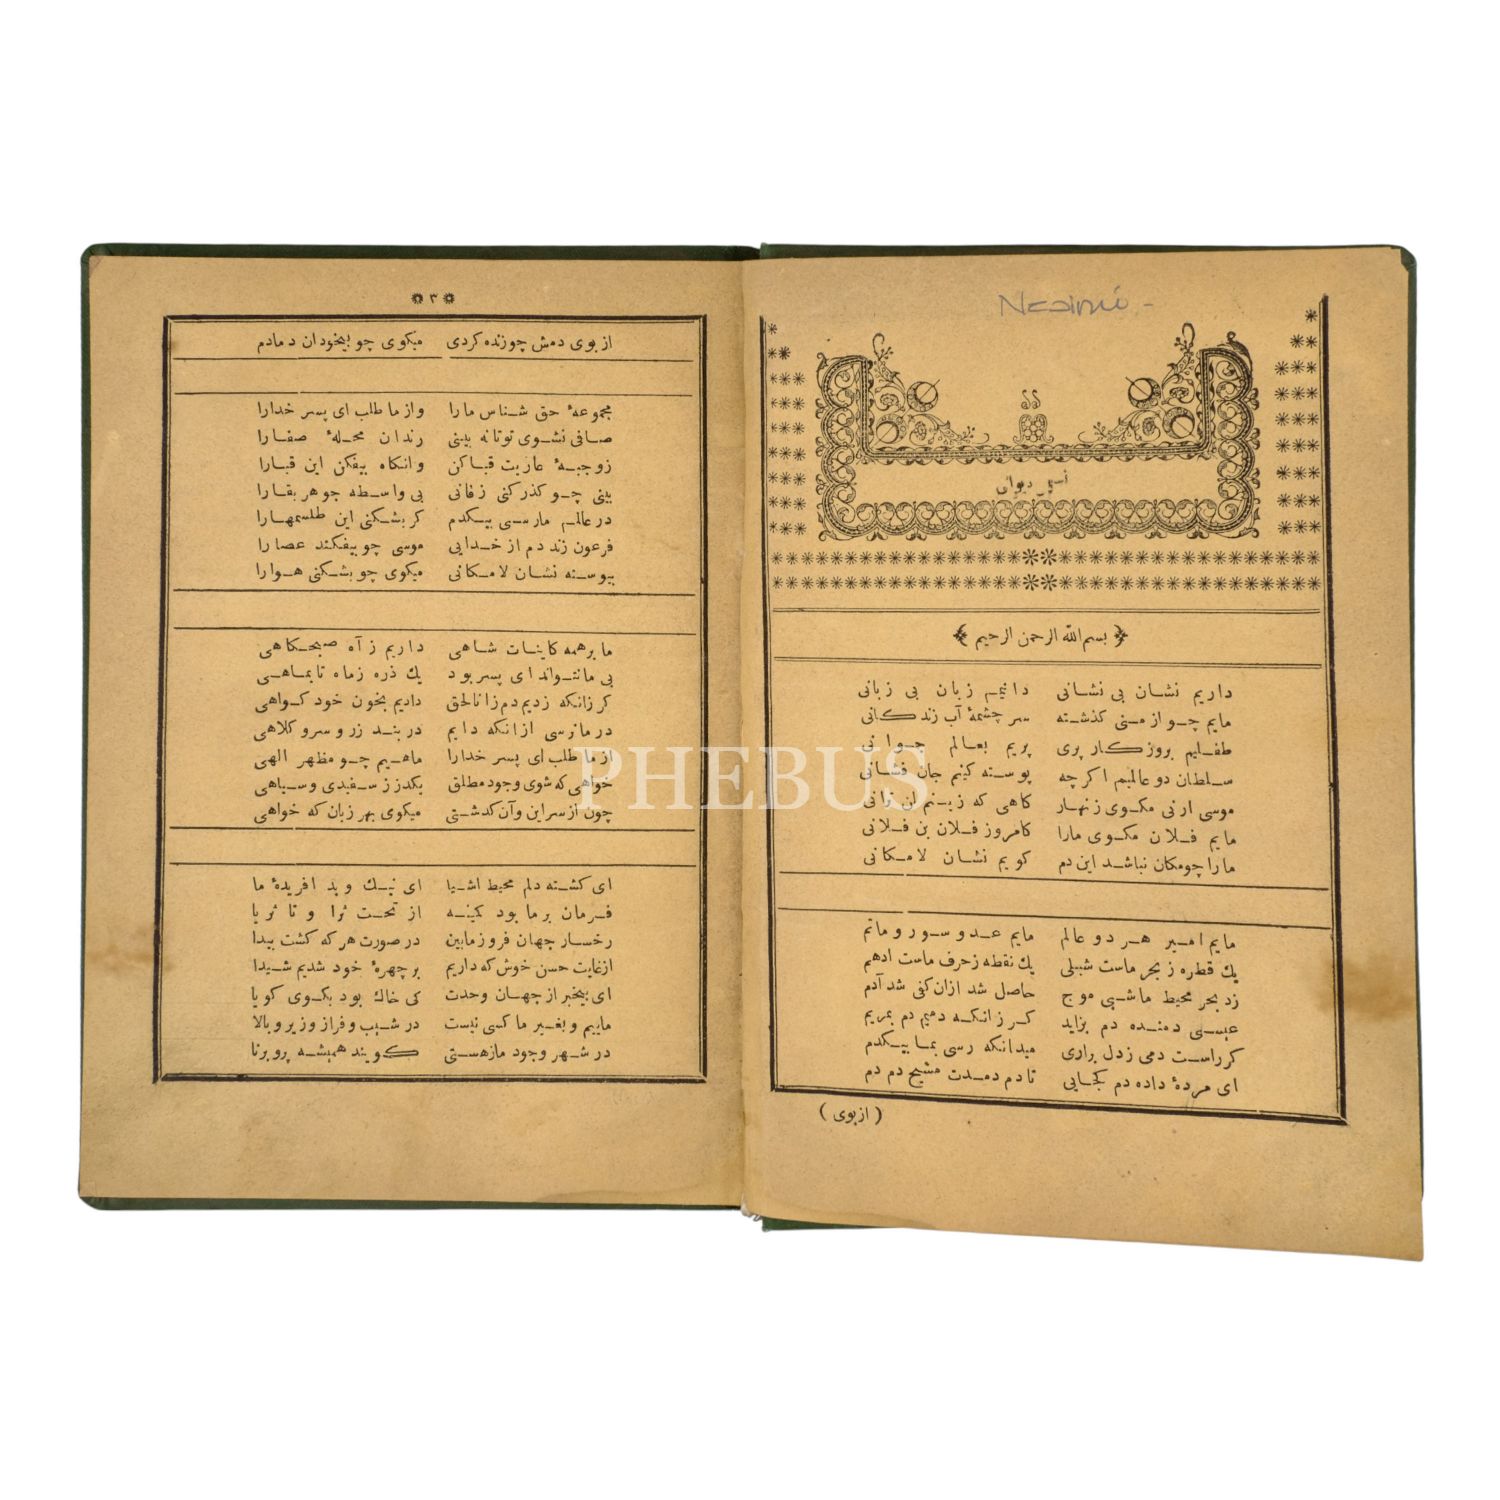 نسیمی دیوانی
﴿ بسم الله الرحمن الرحیم ﴾
داریم نشان بی نشانی دانیم زبان بی زبانی
مایم چو از منی کذشته سر چشمهٔ آب زندکانی
طفلیم بروز کار پری پریم بعالم جوانی
سلطان دو عالمیم اکر چه پوسته کنیم جان فشانی
موسی ارنی مکوی زنهار کاهی که زنیم لن ترانی
مایم فلان مکوی مارا کامروز فلان بن فلانی
مارا چومکان نباشد این دم کویم نشان لامکانی
مایم امیر هر دو عالم مایم عدو سور و ماتم
یك قطره ز بحر ماست شبلی یك نقطه زحرف ماست ادهم
زد بحر محیط ما شبی موج حاصل شد ازان کفی شد آدم
عیسی دمنده دم بزاید کر زانکه دمیم دم بمریم
کرراست دمی زدل براری میدانکه رسی بما بیکدم
ای مردهٔ داده دم کجایی تادم دمدت مسیح دم دم
( از بوی )
۳
از بوی دمش چو زنده کردی میکوی چو بیخودان دمادم
مجموعهٔ حق شناس مارا واز ما طلب ای پسر خدارا
صافی نشوی تو تا نه بینی رندان محلهٔ صفارا
زو جبهٔ عاریت قبا کن وانکاه بیفکن این قبارا
بینی چو کذر کنی زفانی بی واسطه جوهر بقارا
در عالم مارسی بیکدم کر بشکنی این طلسمهارا
فرعون زند دم از خدایی موسی چو بیفکند عصارا
پیوسته نشان لامکانی میکوی چو بشکنی هوارا
ما برهمه کاینات شاهی داریم ز آه صبحکاهی
بی ما نتواند ای پسر بود یك ذره زماه تا بماهی
کر زانکه زدیم دم زانالحق دادیم بخون خود کواهی
در ما نرسی ازانکه دایم در بند زر و سرو کلاهی
از ما طلب ای پسر خدارا ماهیم چو مظهر الهی
خواهی که شوی وجود مطلق بکذر ز سفیدی و سیاهی
چون از سر این وآن کدشتی میکوی بهر زبان که خواهی
ای کشته دلم محیط اشیا ای نیك و بد افریدهٔ ما
فرمان بر ما بود کمینه از تحت ثرا و تا ثریا
رخسار جهان فروز مابین در صورت هر که کشت پیدا
ازغایت حسن خوش که داریم بر چهرهٔ خود شدیم شیدا
ای بیخبر از جهان وحدت کی خاك بود بکوی کویا
ماییم و بغیر ما کسی نیست در شیب و فراز و زیر و بالا
در شهر وجود مازهستی کویند همیشه پرو برنا